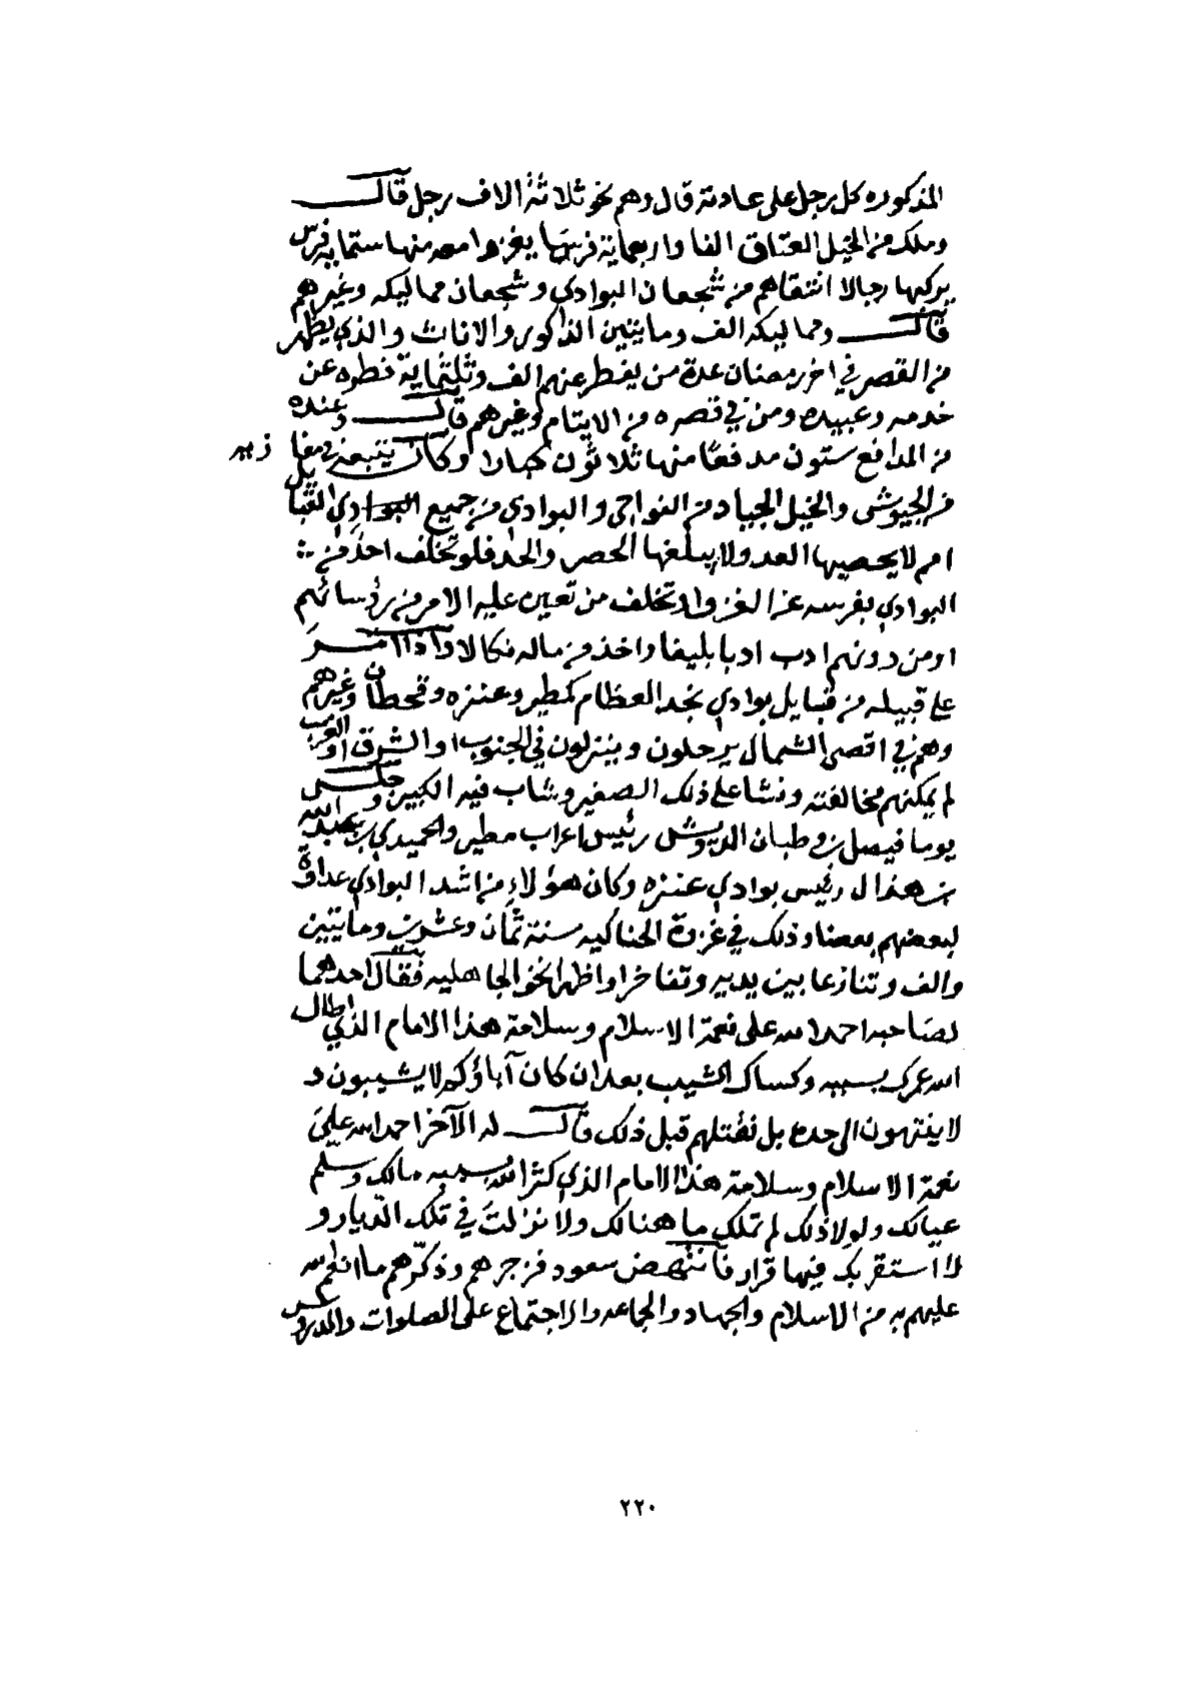 المذكوره كل رجل على عادته قال وهم نحو ثلاثة الاف رجل قال
وملك من الخيل العتاق الفا واربعماية فرسا يغزوا معه منها ستماية فرس
يركبها رجالا انتقاهم من شجعان البوادي وشجعان مماليكه وغيرهم
قال ومماليكه الف ومايتين الذكور والاناث والذي يظهر
من القصر في اخر رمضان عدة من يفطر عنهم الف وثلثماية فطره عن
خدمه وعبيده ومن في قصره من الايتام وغيرهم قال وعنده
من المدافع ستون مدفعا منها ثلاثون كبارا وكان يتبعه في مغازيه
من الجيوش والخيل الجياد من النواحي والبوادي من جميع البوادي القبايل
امم لا يحصيها العد ولا يبلغها الحصر والحد فلو تخلف احد من
البوادي بفرسه عن الغزو او تخلف من تعين عليه الامر من رؤسائهم
او من دونهم ادب ادبا بليغا واخذ من ماله نكالا واذا امر
على قبيله من قبايل بوادي نجد العظام كمطير وعنزه وقحطان وغيرهم
وهم في اقصى الشمال يرحلون وينزلون في الجنوب او الشرق او الغرب
لم يمكنهم مخالفته ونشا على ذلك الصغير وشاب فيه الكبير وجلس
يوما فيصل بن وطبان الدويش رئيس اعراب مطير والحميدي بن عبدالله
بن هذال رئيس بوادي عنزه وكان هؤلاء من اشد البوادي عداوة
لبعضهم بعضا وذلك في غزوة الحناكيه سنة ثمان وعشرين ومايتين
والف وتنازعا بين يديه وتفاخرا واظهرا نخوة الجاهليه فقال احدهما
لصاحبه احمد الله على نعمة الاسلام وسلامة هذا الامام الذي اطال
الله عمرك بسببه وكساك الشيب بعد ان كان آباؤكم لا يشيبون و
لا ينتهون الى حده بل نقتلهم قبل ذلك قال له الآخر احمد الله على
نعمة الاسلام وسلامة هذا الامام الذي كثر الله بسببه مالك وسلم
عيالك ولولا ذلك لم تملك ما هنالك ولا نزلت في تلك الديار و
لا استقر بك فيها قرار فانتهض سعود فزجرهم وذكّرهم ما انعم الله
عليهم به من الاسلام والجهاد والجاعه والاجتماع على الصلوات والدروس
٢٢٠